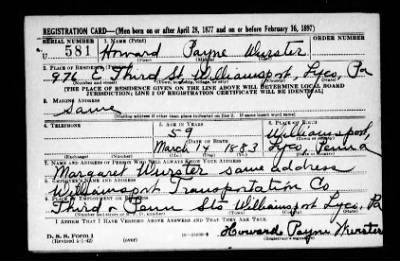 REGISTRATION CARD—(Men born on or after April 28, 1877 and on or before February 16, 1897)
SERIAL NUMBER 1. NAME (Print) ORDER NUMBER
U 581 Howard Payne Wurster
2. PLACE OF RESIDENCE (Print)
976 E Third St Williamsport, Lyco, Pa
[THE PLACE OF RESIDENCE GIVEN ON THE LINE ABOVE WILL DETERMINE LOCAL BOARD
JURISDICTION; LINE 2 OF REGISTRATION CERTIFICATE WILL BE IDENTICAL]
3. MAILING ADDRESS
Same
[Mailing address if other than place indicated on line 2. If same insert word same]
4. TELEPHONE 5. AGE IN YEARS 6. PLACE OF BIRTH
59 Williamsport,
DATE OF BIRTH
March 17 1883 Lyco, Penna
(Exchange) (Number) (Mo.) (Day) (Yr.)
7. NAME AND ADDRESS OF PERSON WHO WILL ALWAYS KNOW YOUR ADDRESS
Margaret Wurster same address
8. EMPLOYER'S NAME AND ADDRESS
Williamsport Transportation Co
9. PLACE OF EMPLOYMENT OR BUSINESS
Third & Penn Sts Williamsport Lyco, Pa
I AFFIRM THAT I HAVE VERIFIED ABOVE ANSWERS AND THAT THEY ARE TRUE.
D. S. S. Form 1
(Revised 4-1-42) (over)
Howard Payne Wurster
(Registrant's signature)